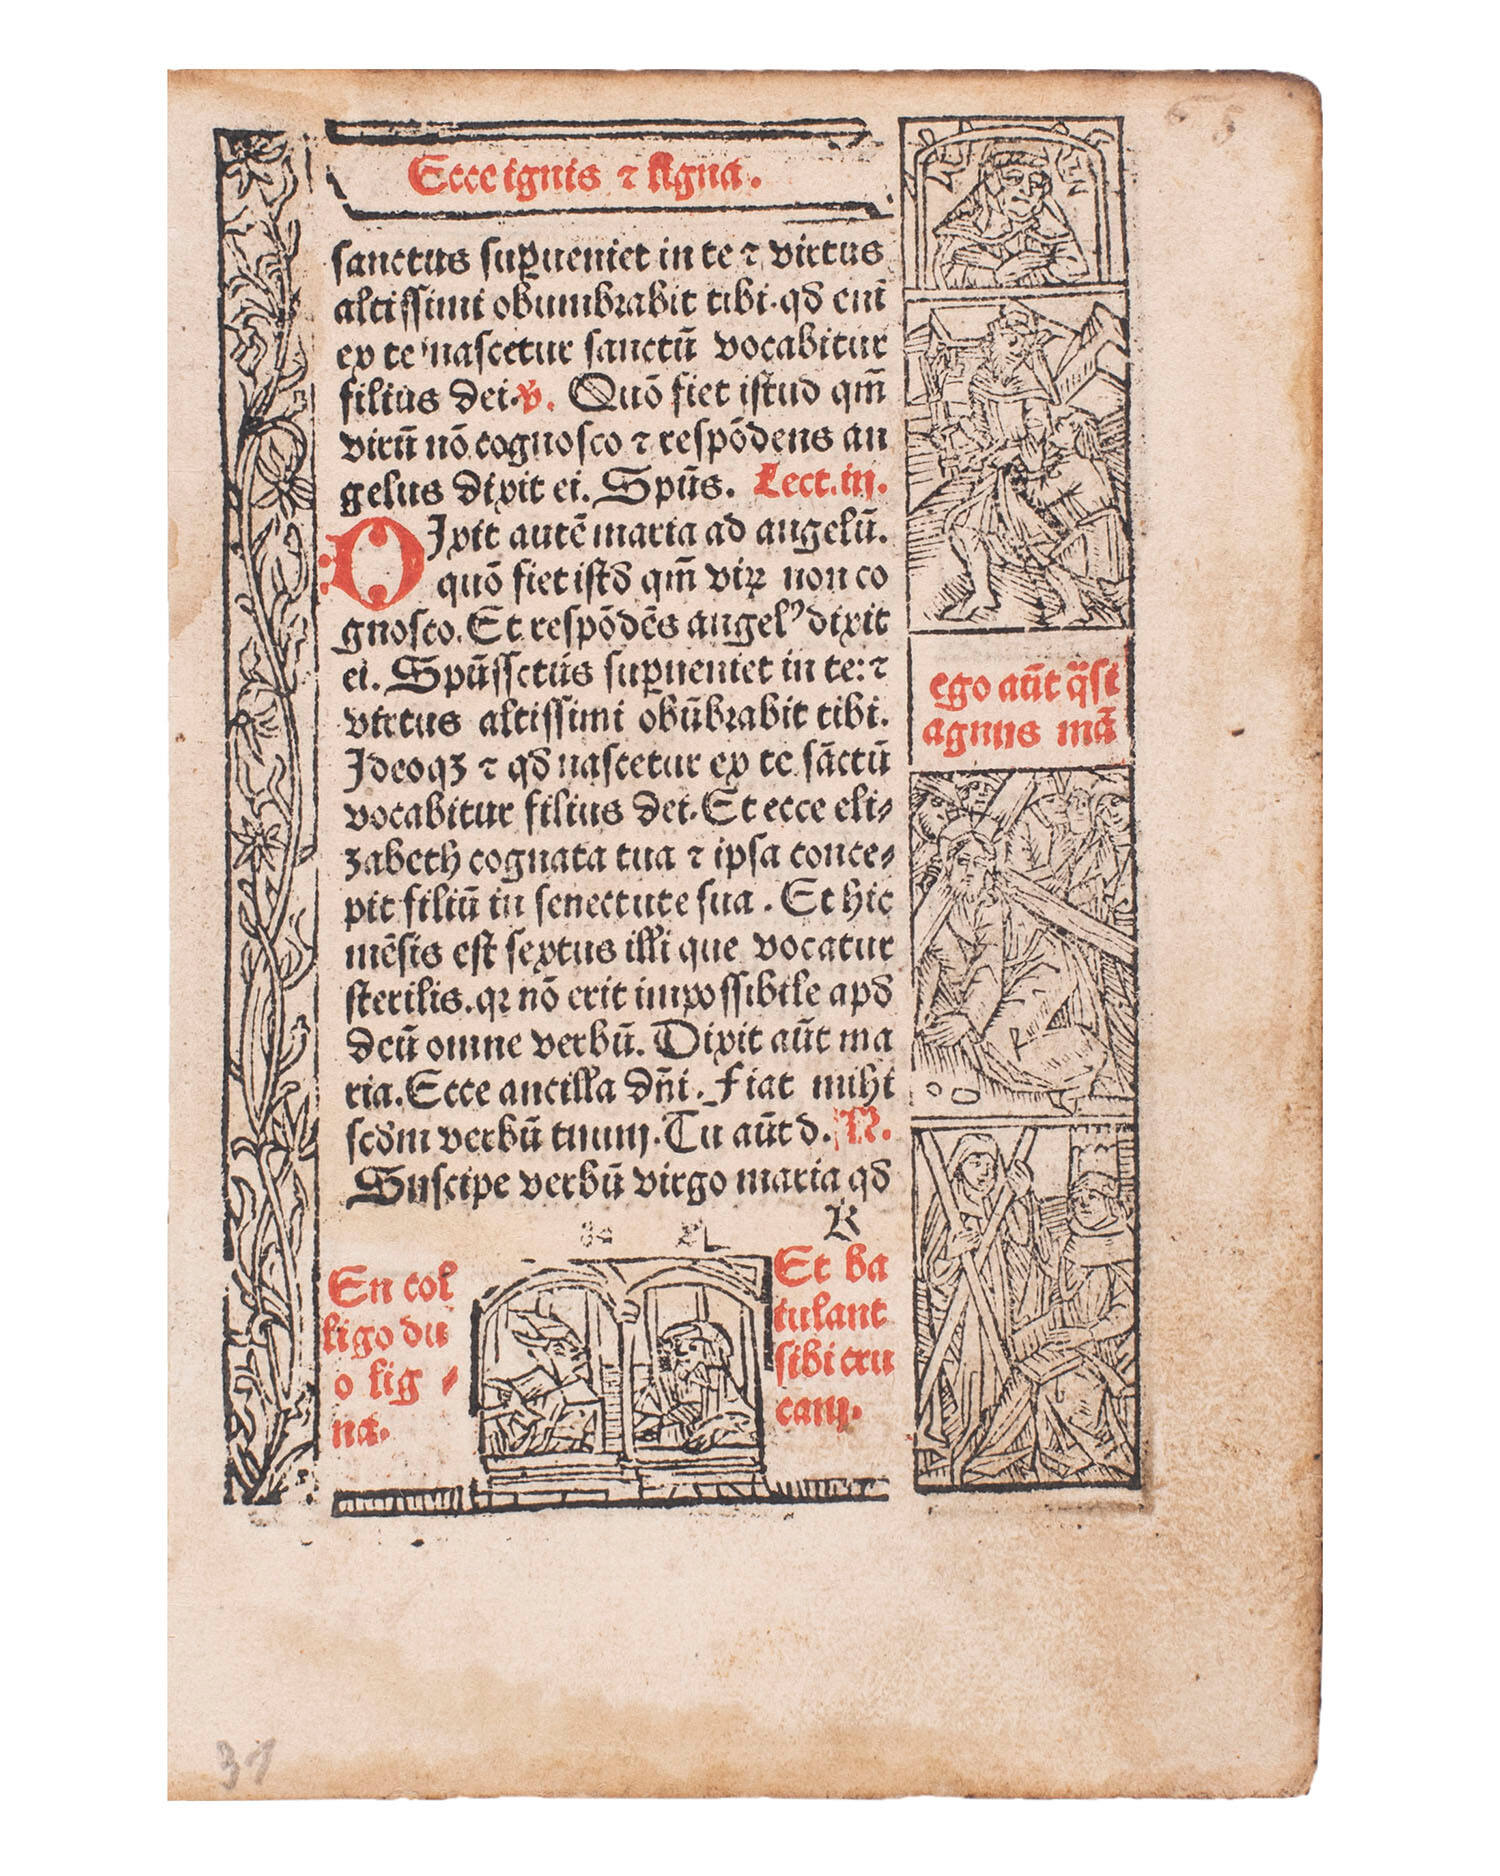 65
Ecce ignis ⁊ ligna.
sanctus supueniet in te ⁊ virtus
altissimi obumbrabit tibi. qd eni
ex te nascetur sanctū vocabitur
filius dei. v. Quō fiet istud qm̄
virū nō cognosco ⁊ respōdens an
gelus dixit ei. Spūs. Lect. iij.
DIxit autē maria ad angelū.
quō fiet istd qm̄ virꝝ non co
gnosco. Et respōdēs angel⁹ dixit
ei. Spūssctūs supueniet in te: ⁊
virtus altissimi obūbrabit tibi.
Ideoqꝫ ⁊ qd nascetur ex te sāctū
vocabitur filius dei. Et ecce eli⸗
zabeth cognata tua ⁊ ipsa conce⸗
pit filiū in senectute sua. Et hic
mēsis est sextus illi que vocatur
sterilis. qꝛ nō erit impossibile apd
deū omne verbū. Dixit aūt ma
ria. Ecce ancilla dn̄i. Fiat mihi
scdm verbū tuum. Tu aūt d. R.
Suscipe verbū virgo maria qd
k
ego aūt q̄si
agnus mā
En col
ligo du
o lig⸗
na.
Et ba
iulant
sibi cru
cem.
31